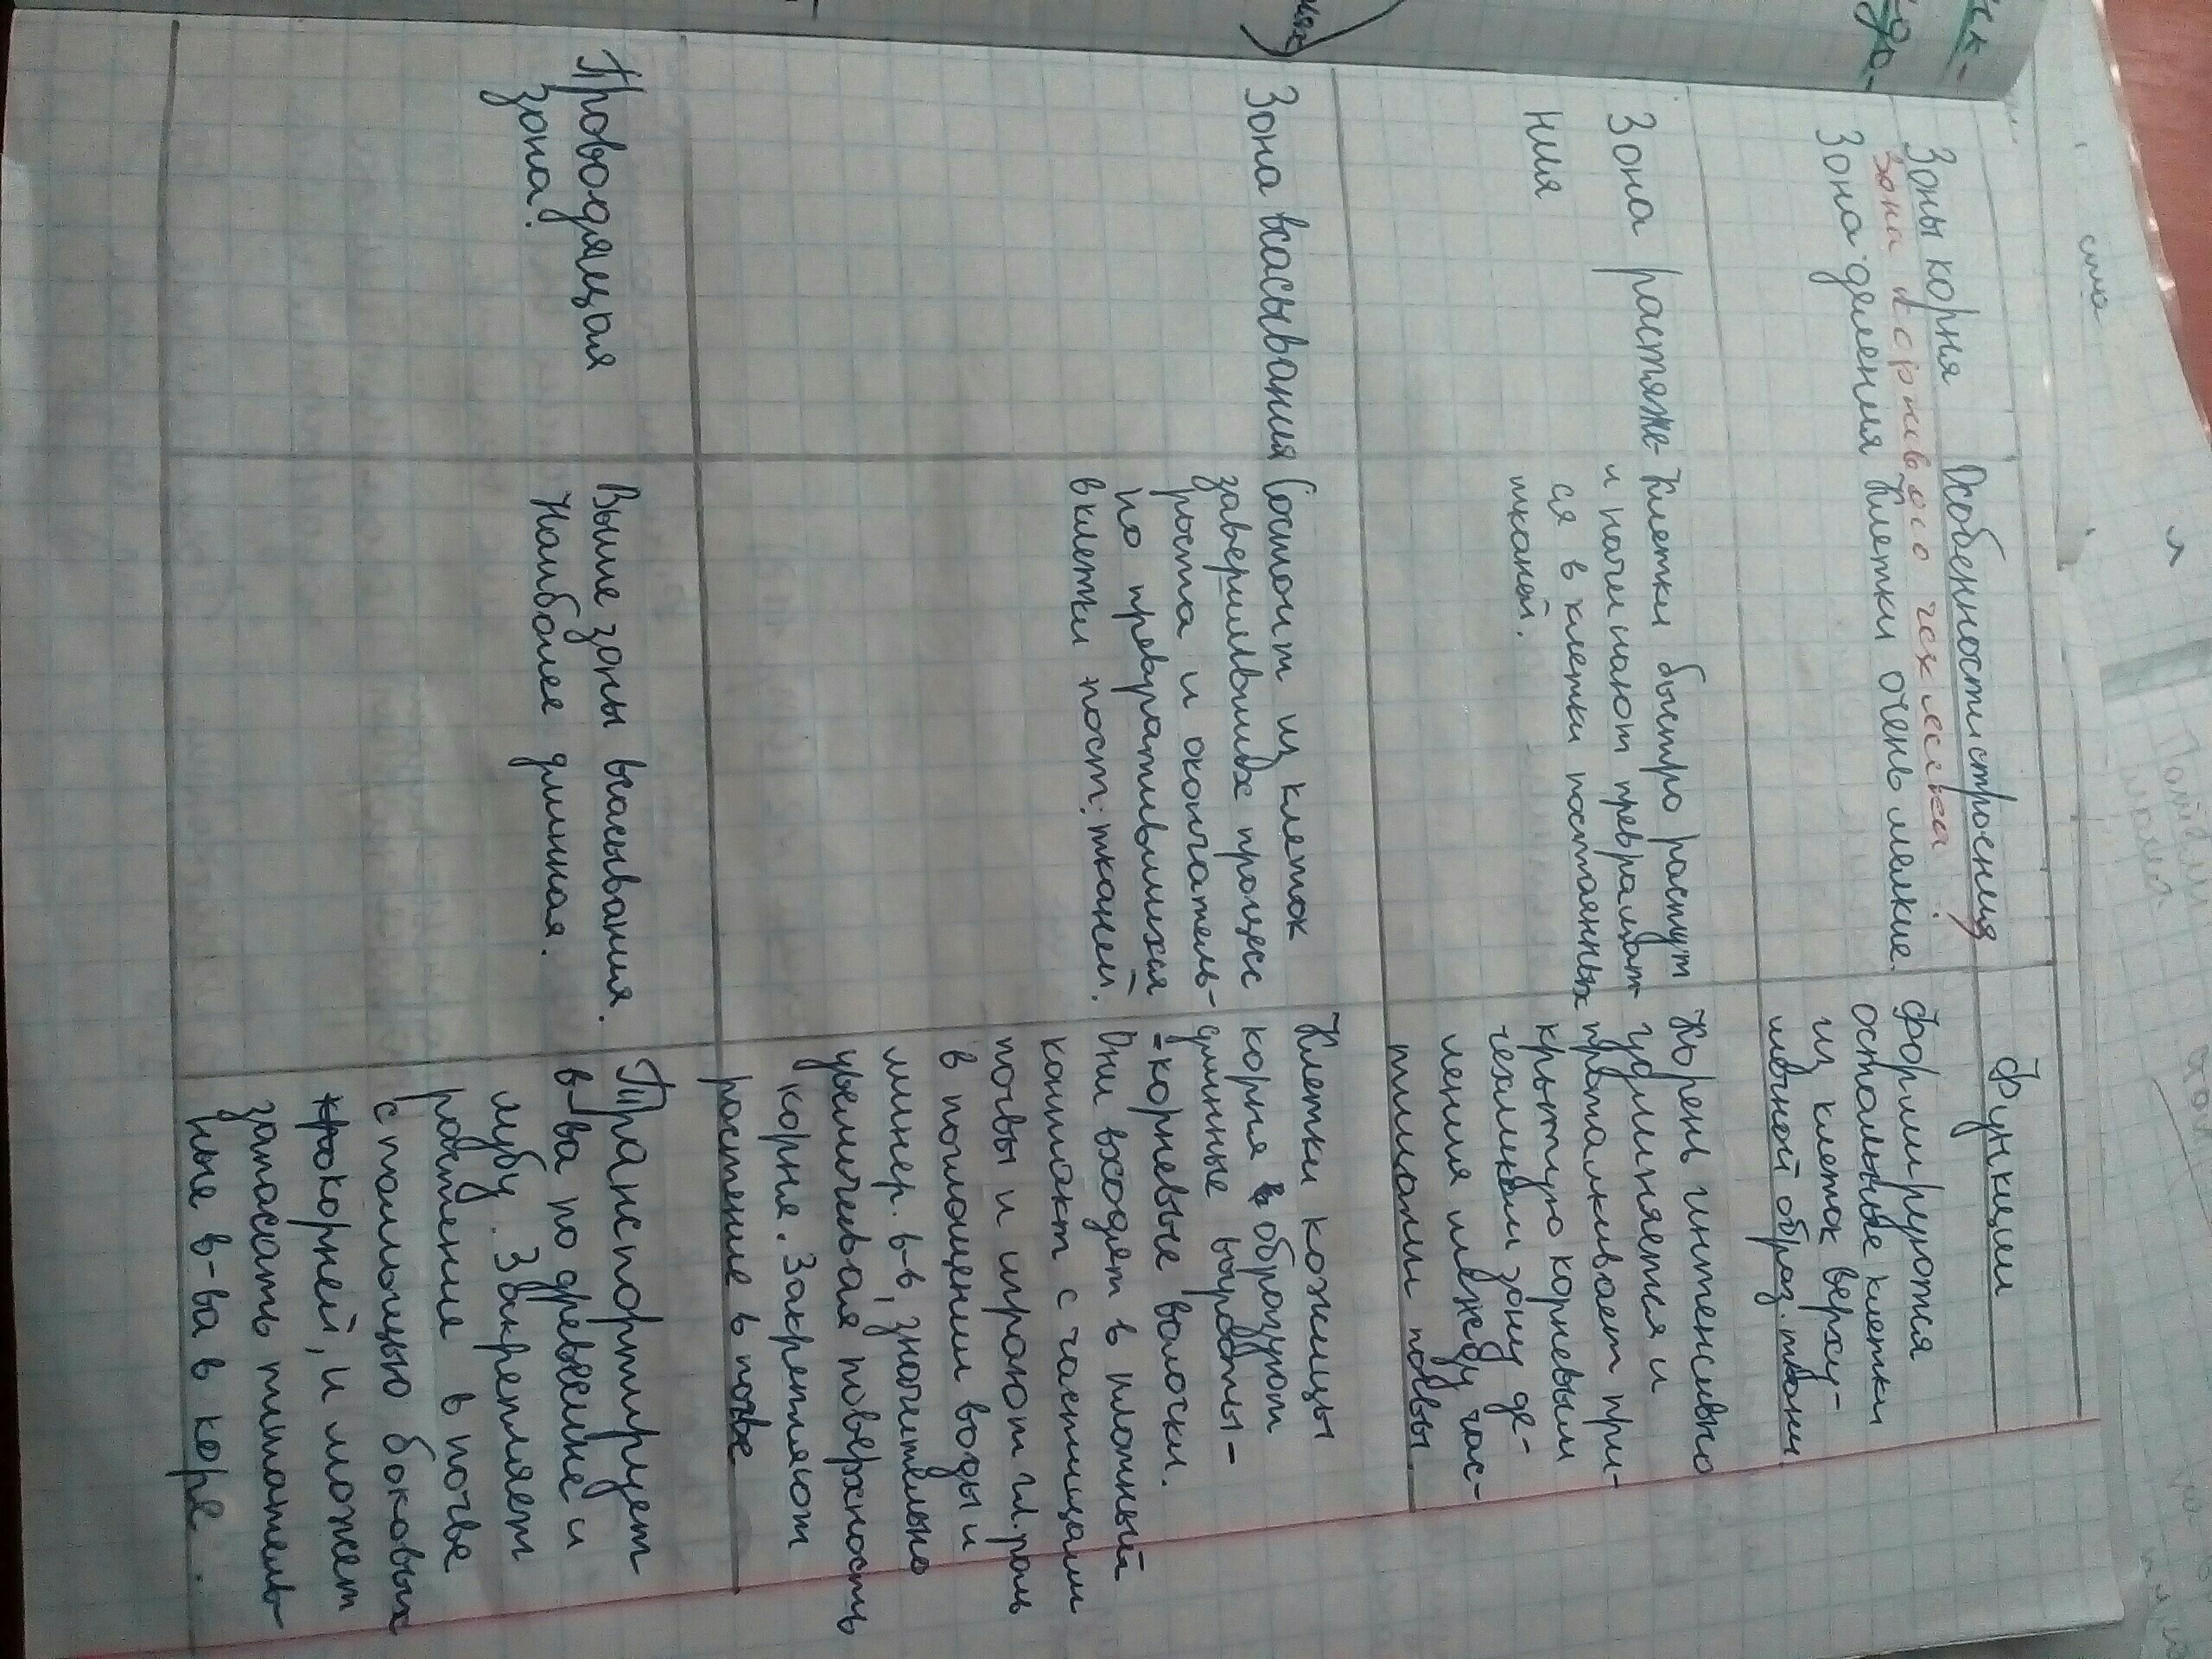 Зоны корня
Особенности строения
Функции
Зона корневого чехлика
Зона деления
Клетки очень мелкие.
Формируются
остальные клетки
из клеток верху-
шечной образ. ткани
Зона растяже-
ния
Клетки быстро растут
и начинают превращат
ся в клетки постоянных
тканей.
Корень интенсивно
удлиняется и
проталкивает при-
крытую корневым
чехликом зону де-
ления между час-
тицами почвы.
Зона всасывания
Состоит из клеток
завершивших процесс
роста и окончатель-
но превратившихся
в клетки пост. тканей.
Клетки кожицы
корня образуют
длинные выросты-
=корневые волоски.
Они входят в плотный
контакт с частицами
почвы и играют гл. роль
в поглощении воды и
минер. в-в, значительно
увеличивая поверхность
корня. Закрепляют
растение в почве
Проводящая
зона.
Выше зоны всасывания.
Наиболее длинная.
Транспортирует
в-ва по древесине и
лубу. Закрепляет
растения в почве
с помощью боковых
корней, и может
запасать питатель-
ные в-ва в коре.
сто